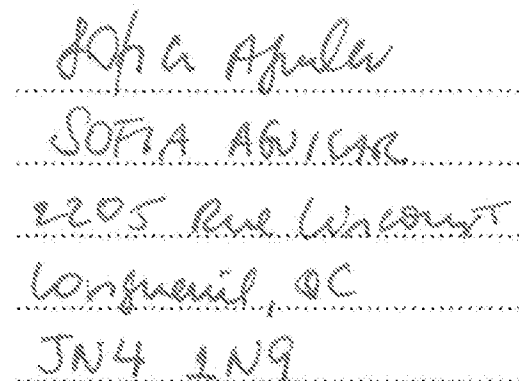 Sofia Aguilar
SOFIA AGUILAR
2205 Rue
Longueuil, QC
JN4 1N9